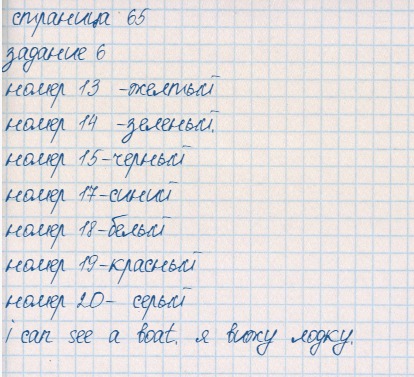 страница 65
задание 6
номер 13 -желтый
номер 14 -зеленый.
номер 15-черный
номер 17-синий
номер 18-белый
номер 19-красный
номер 20- серый
i can see a boat. я вижу лодку.